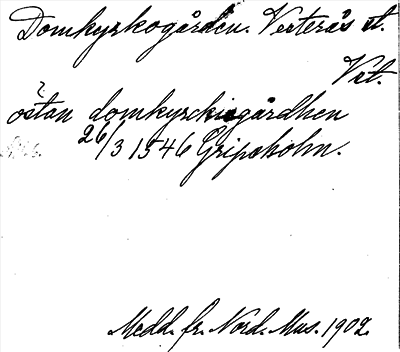 Domkyrkogården. Vesterås st.
Vstl.
östan domkyrckiegårdhen
26/3 1546 Gripsholm.
Medd. fr. Nord. Mus. 1902.